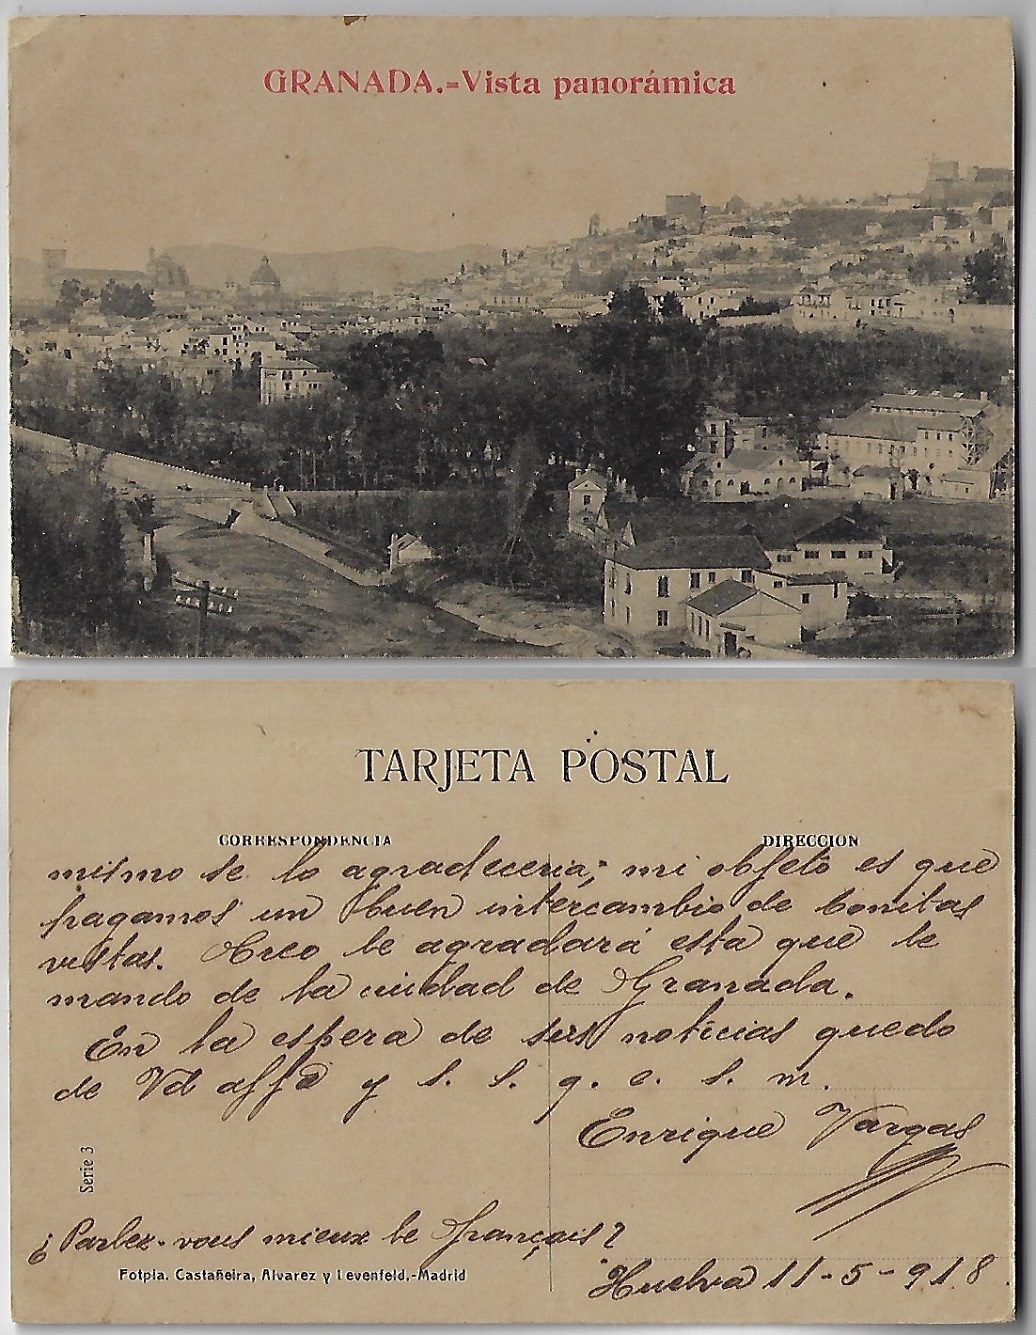 GRANADA.=Vista panorámica
TARJETA POSTAL
CORRESPONDENCIA
DIRECCION
mismo se lo agradeceria; mi objeto es que
hagamos un buen intercambio de bonitas
vistas. Creo le agradará esta que le
mando de la ciudad de Granada.
En la espera de sus noticias quedo
de Vd affo y s. s. q. e. s. m.
Enrique Vargas
Serie 3
¿Parlez-vous mieux le français?
Fotpia. Castañeira, Alvarez y Levenfeld.-Madrid
Huelva 11-5-918.